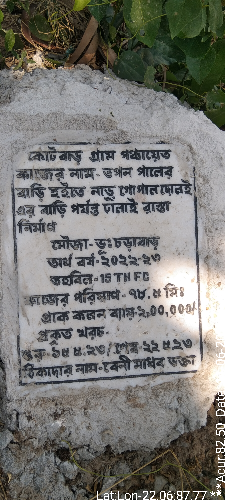 কোটবাড় গ্রাম পঞ্চায়েত
কাজের নাম- তপন পালের
বাড়ি হইতে নাড়ু গোপাল
এর বাড়ি পর্যন্ত ঢালাই রাস্তা
নির্মাণ
মৌজা-
অর্থ বর্ষ-২০২২-২৩
তহবিল-15 TH FC
কাজের পরিমাণ- ৭৮.৫ মিঃ
প্রাক কলন ব্যয়-২,00,000/-
প্রকৃত খরচ-
শুরু-১৫.৪.২৩/ শেষ-২২.৪.২৩
ঠিকাদার নাম-বেনী মাধব ভক্তা
Lat:Lon-22.06:87.77
**Acur:82.50